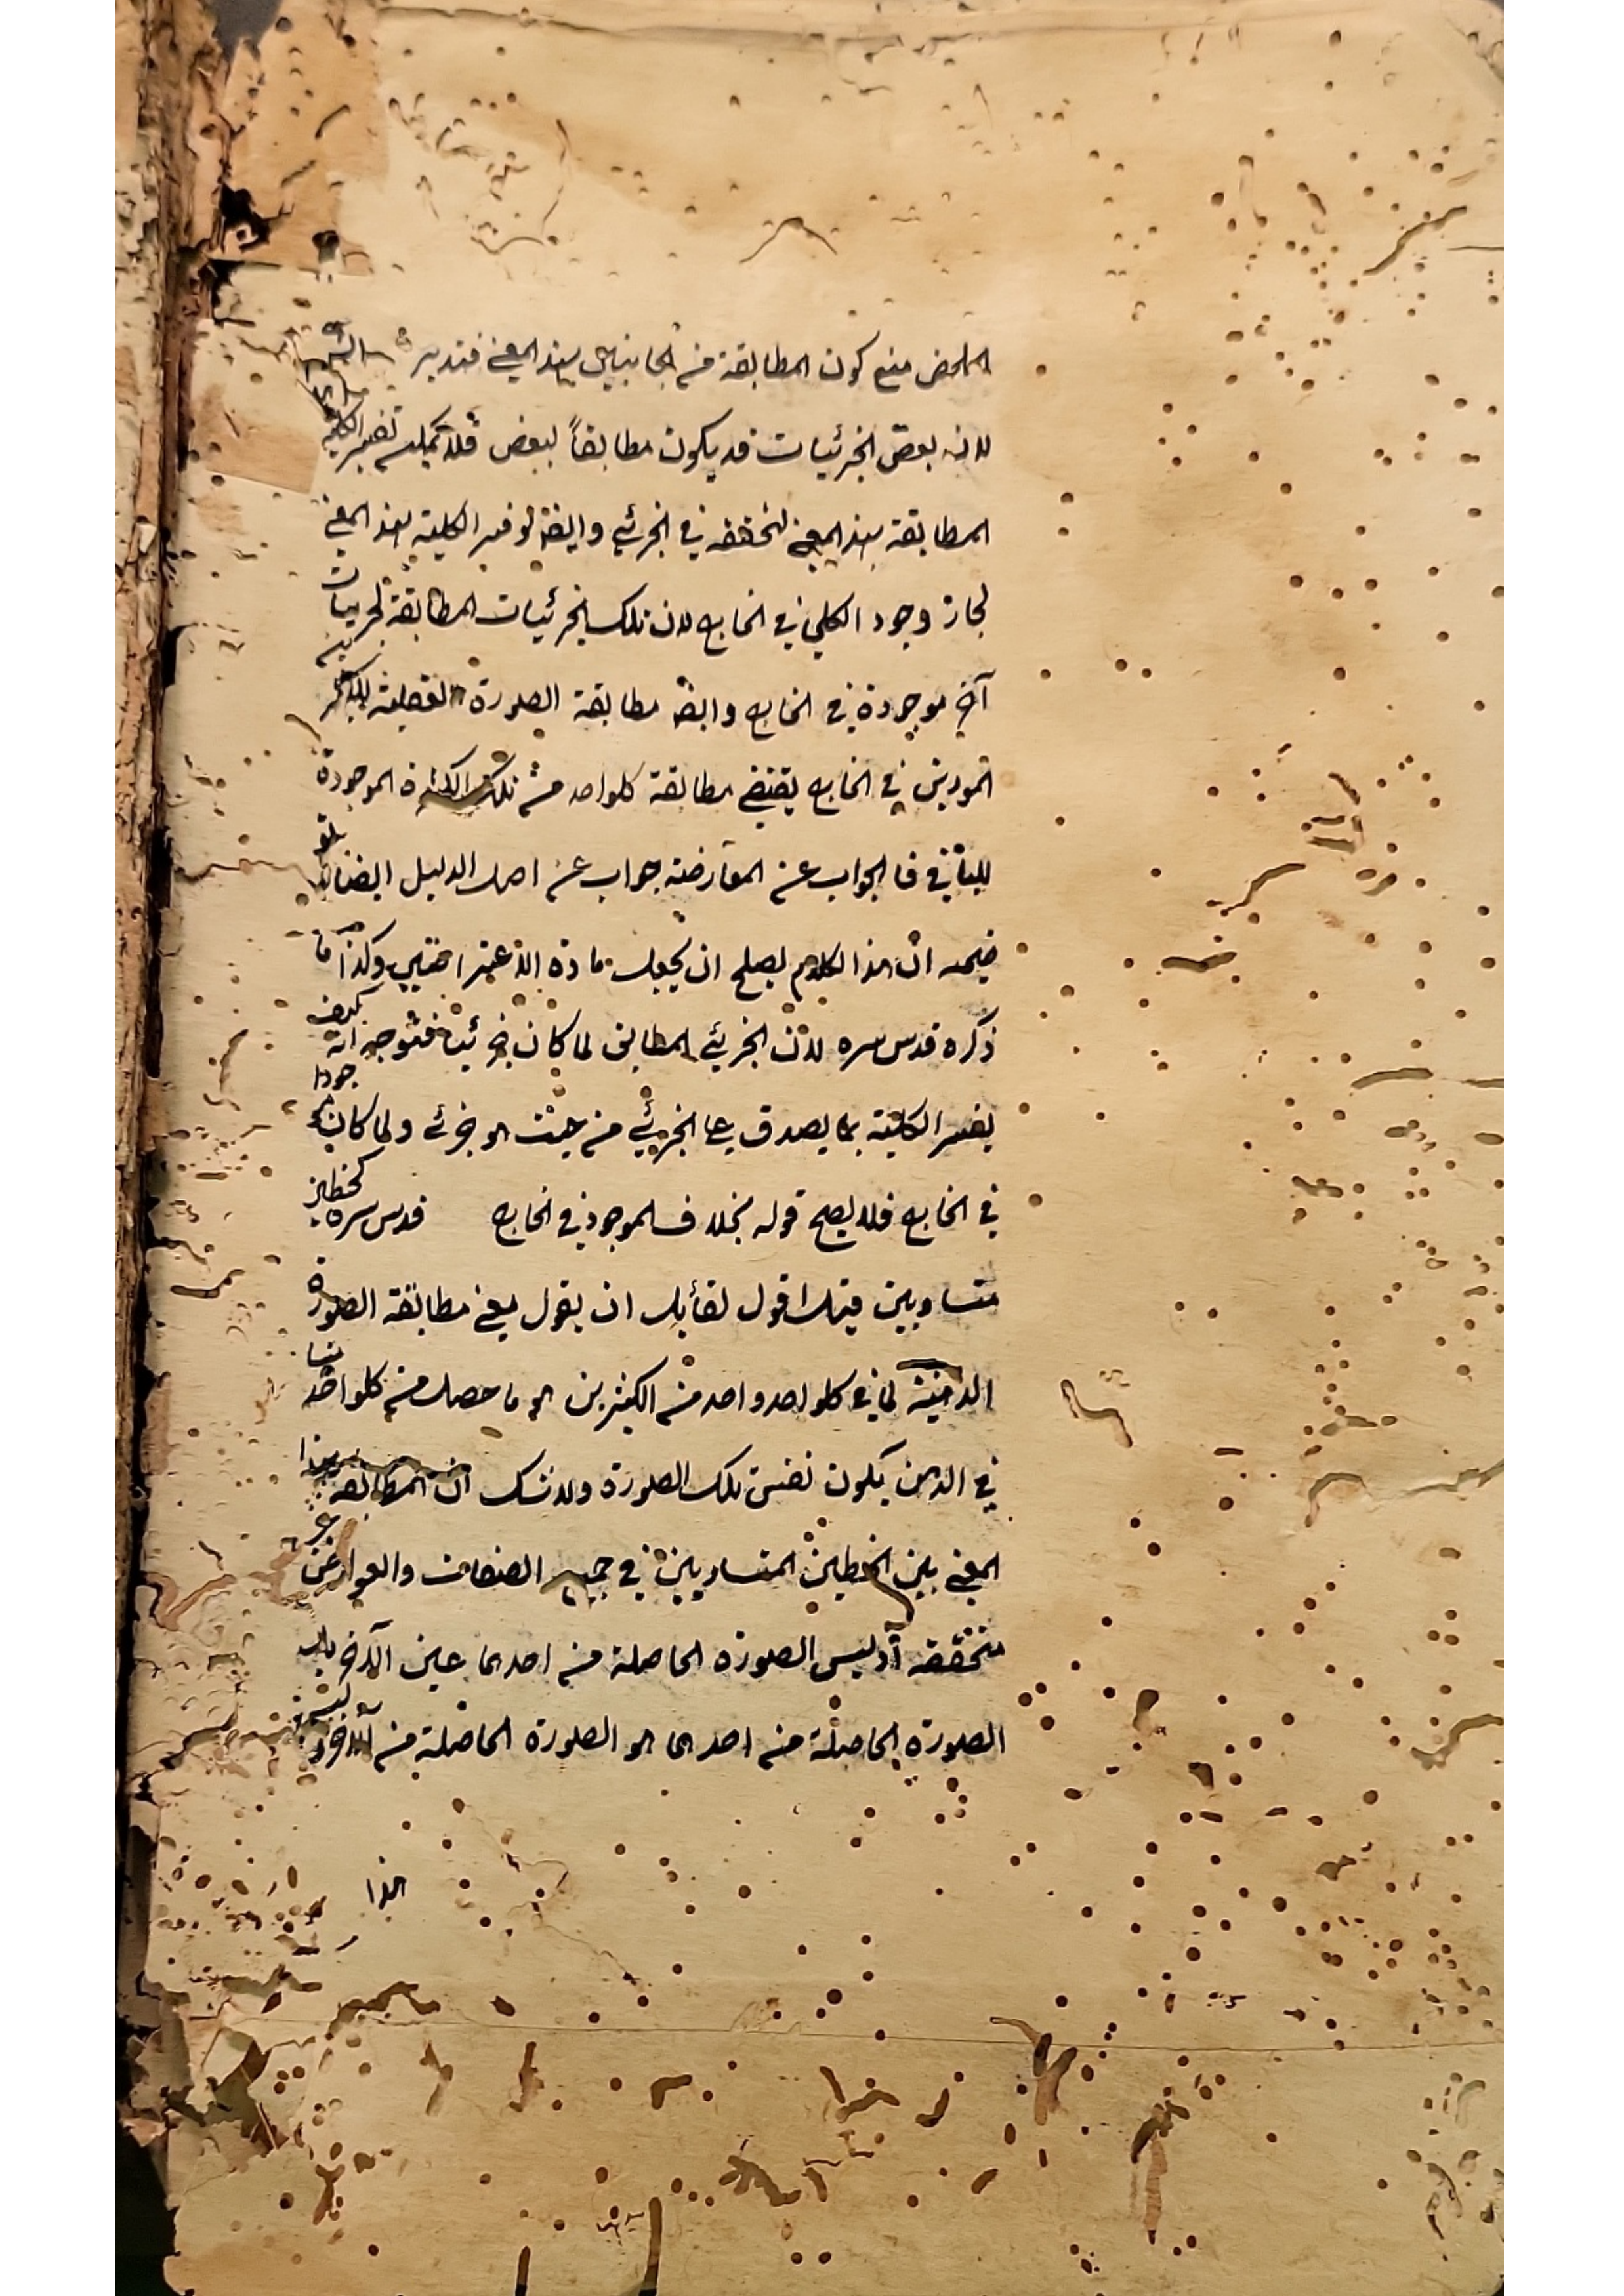 الملخص منع كون المطابقة من الجانبين بهذا المعنى فتدبر
لان بعض الجزئيات قد يكون مطابقاً لبعض فلا يمكن تفسير الكلية
المطابقة بهذا المعنى لتحققه في الجزئي وايضا لو فسر الكلية بهذا المعنى
لجاز وجود الكلي في الخارج لان تلك الجزئيات المطابقة لجزئيات
آخر موجودة في الخارج وايضا مطابقة الصورة العقلية
في الخارج يقتضي مطابقة كلواحد من تلك الكثرة الموجودة
للباقي فالجواب عن المعارضة جواب عن اصل الدليل ايضا
ان هذا الكلام يصلح ان يجعل مادة الاعتراضين وكذا ما
ذكره قدس سره لان الجزئي المطابق لما كان جزئيا فتوجه انه كيف
يفسر الكلية بما يصدق على الجزئي من حيث هو جزئي ولما كان موجودا
في الخارج فلا يصح قوله بخلاف الموجود في الخارج قدس سره كخطين
متساويين قيل اقول لقائل ان يقول معنى مطابقة الصورة
الذهنية لما في كلواحد واحد من الكثيرين هو ما حصل من كلواحد منها
في الذهن يكون نفس تلك الصورة ولا شك ان المطابقة بهذا
المعنى بين الخطين المتساويين في جميع الصفات والعوارض غير
متحققه اذ ليس الصورة الحاصلة من احدهما عين الآخر بل
الصورة الحاصلة من احدهما هو الصورة الحاصلة من الآخر
هذا